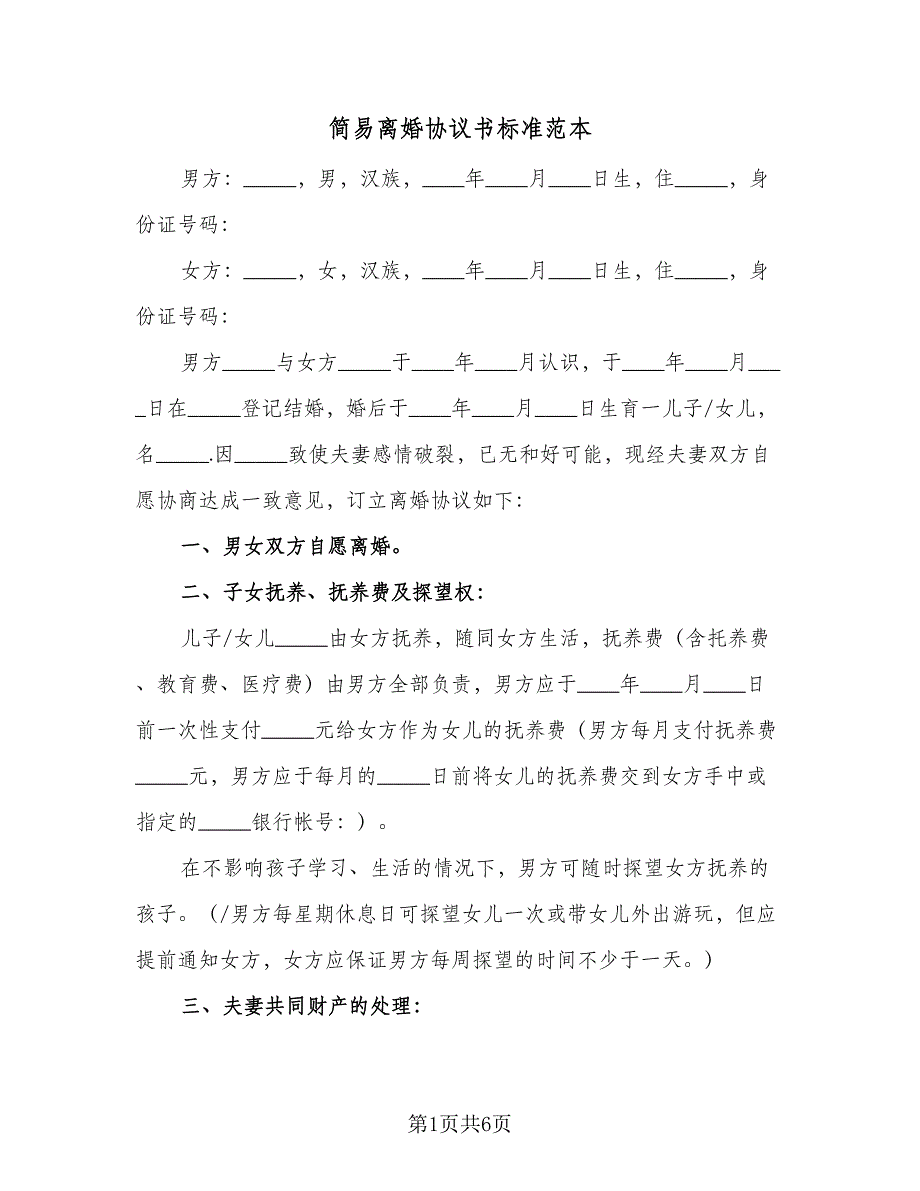 简易离婚协议书标准范本
男方：_____，男，汉族，____年____月____日生，住_____，身
份证号码：
女方：_____，女，汉族，____年____月____日生，住_____，身
份证号码：
男方_____与女方_____于____年____月认识，于____年____月___
_日在_____登记结婚，婚后于____年____月____日生育一儿子/女儿，
名_____.因_____致使夫妻感情破裂，已无和好可能，现经夫妻双方自
愿协商达成一致意见，订立离婚协议如下：
一、男女双方自愿离婚。
二、子女抚养、抚养费及探望权：
儿子/女儿_____由女方抚养，随同女方生活，抚养费（含托养费
、教育费、医疗费）由男方全部负责，男方应于____年____月____日
前一次性支付_____元给女方作为女儿的抚养费（男方每月支付抚养费
_____元，男方应于每月的_____日前将女儿的抚养费交到女方手中或
指定的_____银行帐号：）。
在不影响孩子学习、生活的情况下，男方可随时探望女方抚养的
孩子。（/男方每星期休息日可探望女儿一次或带女儿外出游玩，但应
提前通知女方，女方应保证男方每周探望的时间不少于一天。）
三、夫妻共同财产的处理：
第1页共6页